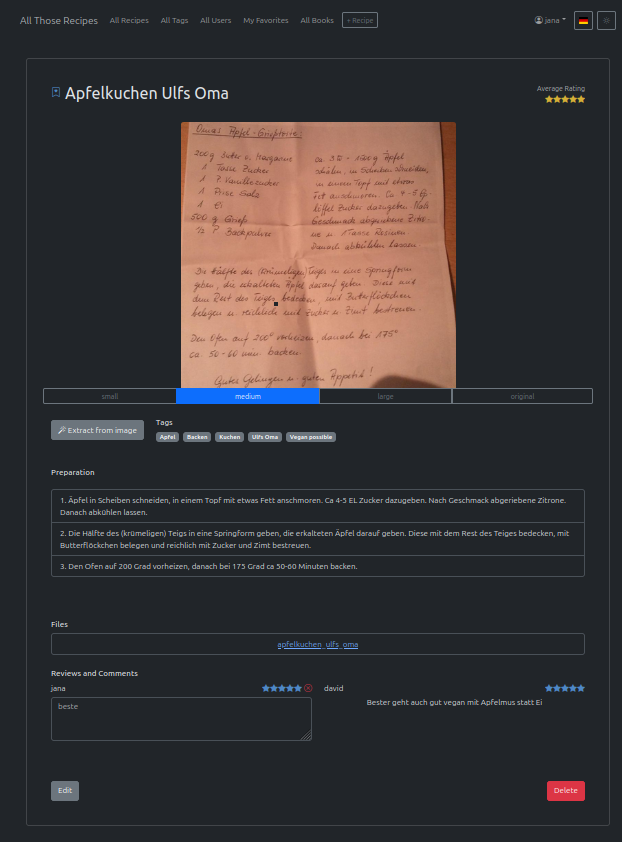 All Those Recipes All Recipes All Tags All Users My Favorites All Books + Recipe jana
Apfelkuchen Ulfs Oma
Average Rating
Omas Äpfel-Grieptorte:
200g Butter o. Margarine
1 Tasse Zucker
1 P. Vanillezucker
1 Prise Salz
1 Ei
500 g
½ P. Backpulver
ca. 3 1200g Äpfel
schälen, in Scheiben schneiden
in einem Topf mit etwas
Fett anschmoren. Ca 4-5 Eß-
löffel Zucker dazugeben. Nach
Geschmack abgeriebene Zitro-
ne u. 1 Tasse Rosinen.
Danach abkühlen lassen
Die Hälfte des (krümeligen) Teiges in eine Springform
geben, die erkalteten Äpfel darauf geben. Diese mit
dem Rest des Teiges bedecken, mit Butterflöckchen
belegen u. reichlich mit Zucker u. Zimt bestreuen.
Den Ofen auf 200° vorheizen, danach bei 175°
ca. 50-60 min. backen.
Gutes Gelingen u. guten Appetit!
small medium large original
Extract from image
Tags
Apfel Backen Kuchen Ulfs Oma Vegan possible
Preparation
1. Äpfel in Scheiben schneiden, in einem Topf mit etwas Fett anschmoren. Ca 4-5 EL Zucker dazugeben. Nach Geschmack abgeriebene Zitrone.
Danach abkühlen lassen.
2. Die Hälfte des (krümeligen) Teigs in eine Springform geben, die erkalteten Äpfel darauf geben. Diese mit dem Rest des Teiges bedecken, mit
Butterflöckchen belegen und reichlich mit Zucker und Zimt bestreuen.
3. Den Ofen auf 200 Grad vorheizen, danach bei 175 Grad ca 50-60 Minuten backen.
Files
apfelkuchen_ulfs_oma
Reviews and Comments
jana
beste
david
Bester geht auch gut vegan mit Apfelmus statt Ei
Edit Delete